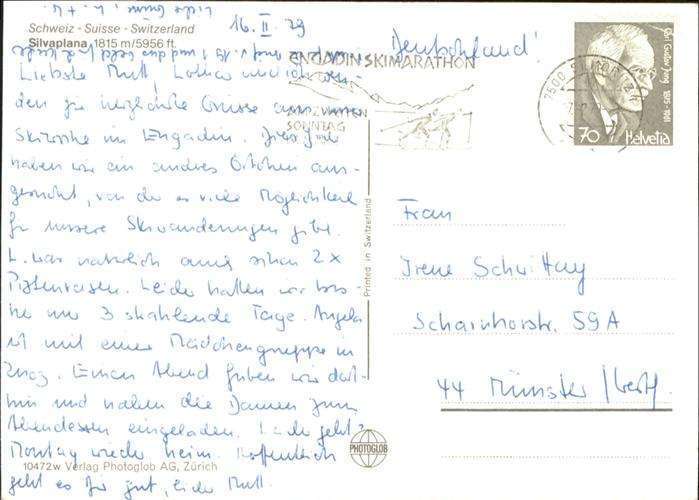 Schweiz - Suisse - Switzerland
Silvaplana, 1815 m/5956 ft.
16. II. 79
Liebste Mutt, Lothar und ich
den Dir herzliche Grüsse aus
Skiwoche im Engadin. Dies Jahr
haben wir ein anderes Örtchen aus-
gesucht, von da es viele Möglichkeit
für unsere Skiwanderungen gibt.
L. war natürlich auch schon 2 x
Pistenrasen. Leider hatten wir bis-
he nur 3 strahlende Tage. Angela
ist mit einer Mädchengruppe in
Zuoz. Einen Abend fuhren wir dort-
hin und haben die Damen zum
Abendessen eingeladen.
Montag wieder heim. Hoffentlich
geht es Dir gut, liebe Mutt.
10472w Verlag Photoglob AG, Zürich
PHOTOGLOB
Printed in Switzerland
ENGADIN SKIMARATHON
ZWEITEN
SONNTAG
7500 ST. MORITZ
Carl Gustav Jung 1875-1961
70 Helvetia
Deutschland!
Frau
Irene Schwittay
Scharnhorststr. 59A
44 Münster / Westf.